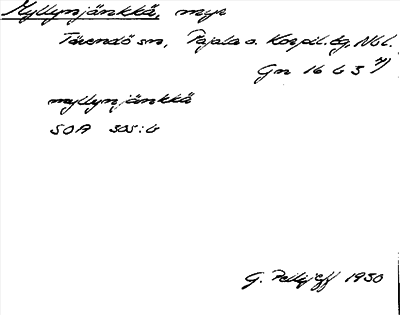 Myllynjänkkä, myr
Tärendö sn, Pajala o. Korpil. tg, Nbl.
Gn 16 b 3
myllynjänkkä
SOA 505:6
G. Pellijeff 1950